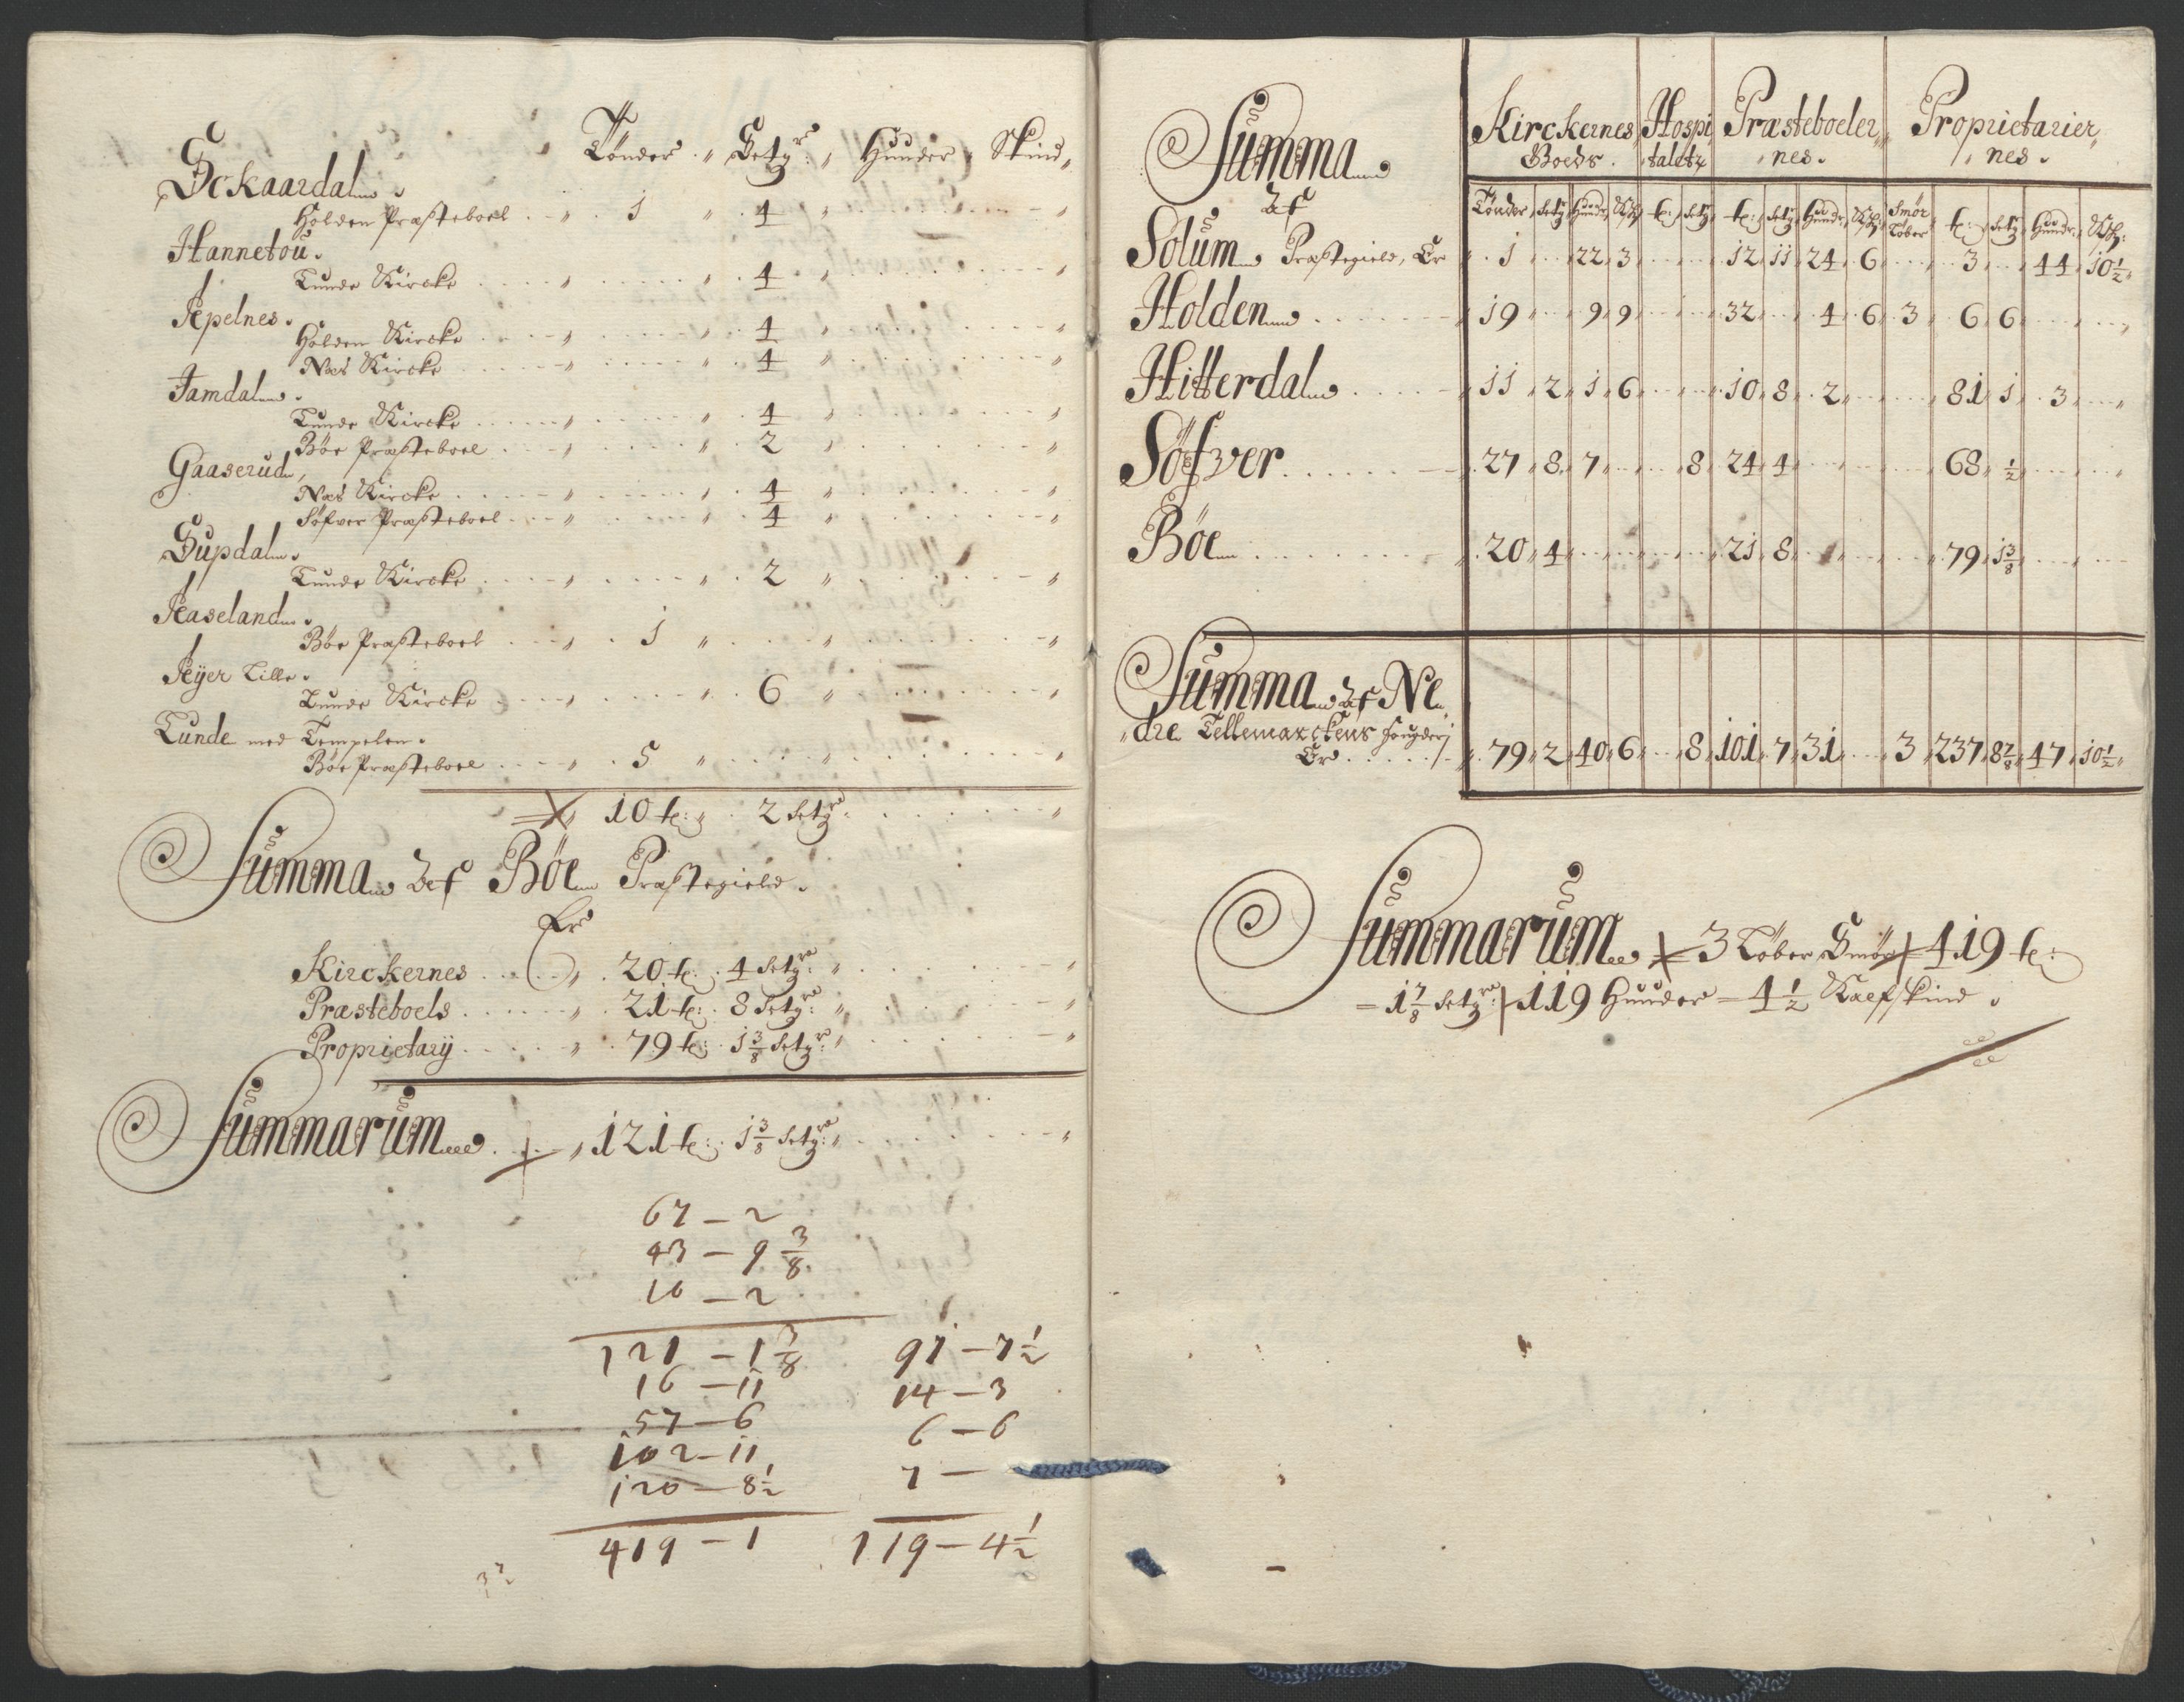 Tönder Setzr: Huuder Skind
Eckaardal
Holden Præsteboel 1 4
Hannetou
Lunde Kircke 4
Repelnes
Holden Kircke 4
Næs Kircke 4
Jamdal
Lunde Kircke 4
Böe Præsteboel 2
Gaaserud
Næs Kircke 4
Söfver Præsteboel 4
Gupdal
Lunde Kircke 2
Raseland
Böe Præsteboel 1
Reyer Lille
Lunde Kircke 6
Lunde med Tempelen
Böe Præsteboel 5
10 t: 2 Setzr:
Summa Af Böe Præstegield
Er
Kirckernes 20 t: 4 Setzr:
Præsteboels 21 t: 8 Setzr:
Proprietarij 79 t: 1 3/8 Setzr:
Summarum 121 t: 1 3/8 Setzr:
67 - 2
43 - 9 3/8
10 - 2
121 - 1 3/8 91 - 7 1/2
16 - 11 14 - 3
57 - 6 6 - 6
102 - 11 7 -
120 - 8 1/2
419 - 1 119 - 4 1/2
Summa Kirckernes Hospi Præsteboeler Proprietarier
Af Boeds taletz nes nes
Tönder Setz Huudr t: Setz t: Setz Huudr Smör Löber t: Setz Huudr
Solum Præstegield, Er 1 22 3 12 11 24 6 3 44 10 1/2
Holden 19 9 9 32 4 6 3 6 6
Hitterdal 11 2 1 6 10 8 2 81 1 3
Söfver 27 8 7 8 24 4 68 1/2
Böe 20 4 21 8 79 1 3/8
Summa Af Ne
dre Tellemarckens fougderj
Er 79 2 40 6 8 101 7 31 3 237 8 7/8 47 10 1/2
Summarum 3 Löber Smör 419 t:
1 7/8 Setzr: 119 Huuder 4 1/2 Kalfskind